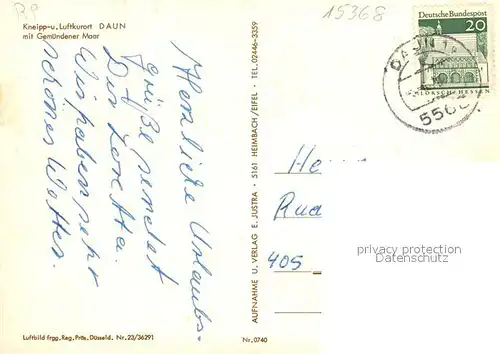 PP
15368
Kneipp-u. Luftkurort DAUN
mit Gemündener Maar
Deutsche Bundespost
20
LORSCH/HESSEN
DAUN 1
Herzliche Urlaubs-
grüße sendet
Dir Loretta.
Wir haben sehr
schönes Wetter.
AUFNAHME U. VERLAG E. JUSTRA · 5161 HEIMBACH/EIFEL · TEL. 02446-3359
He
Rud
405
privacy protection
Datenschutz
Luftbild frgg. Reg. Präs. Düsseld. Nr. 23/36291
Nr. 0740